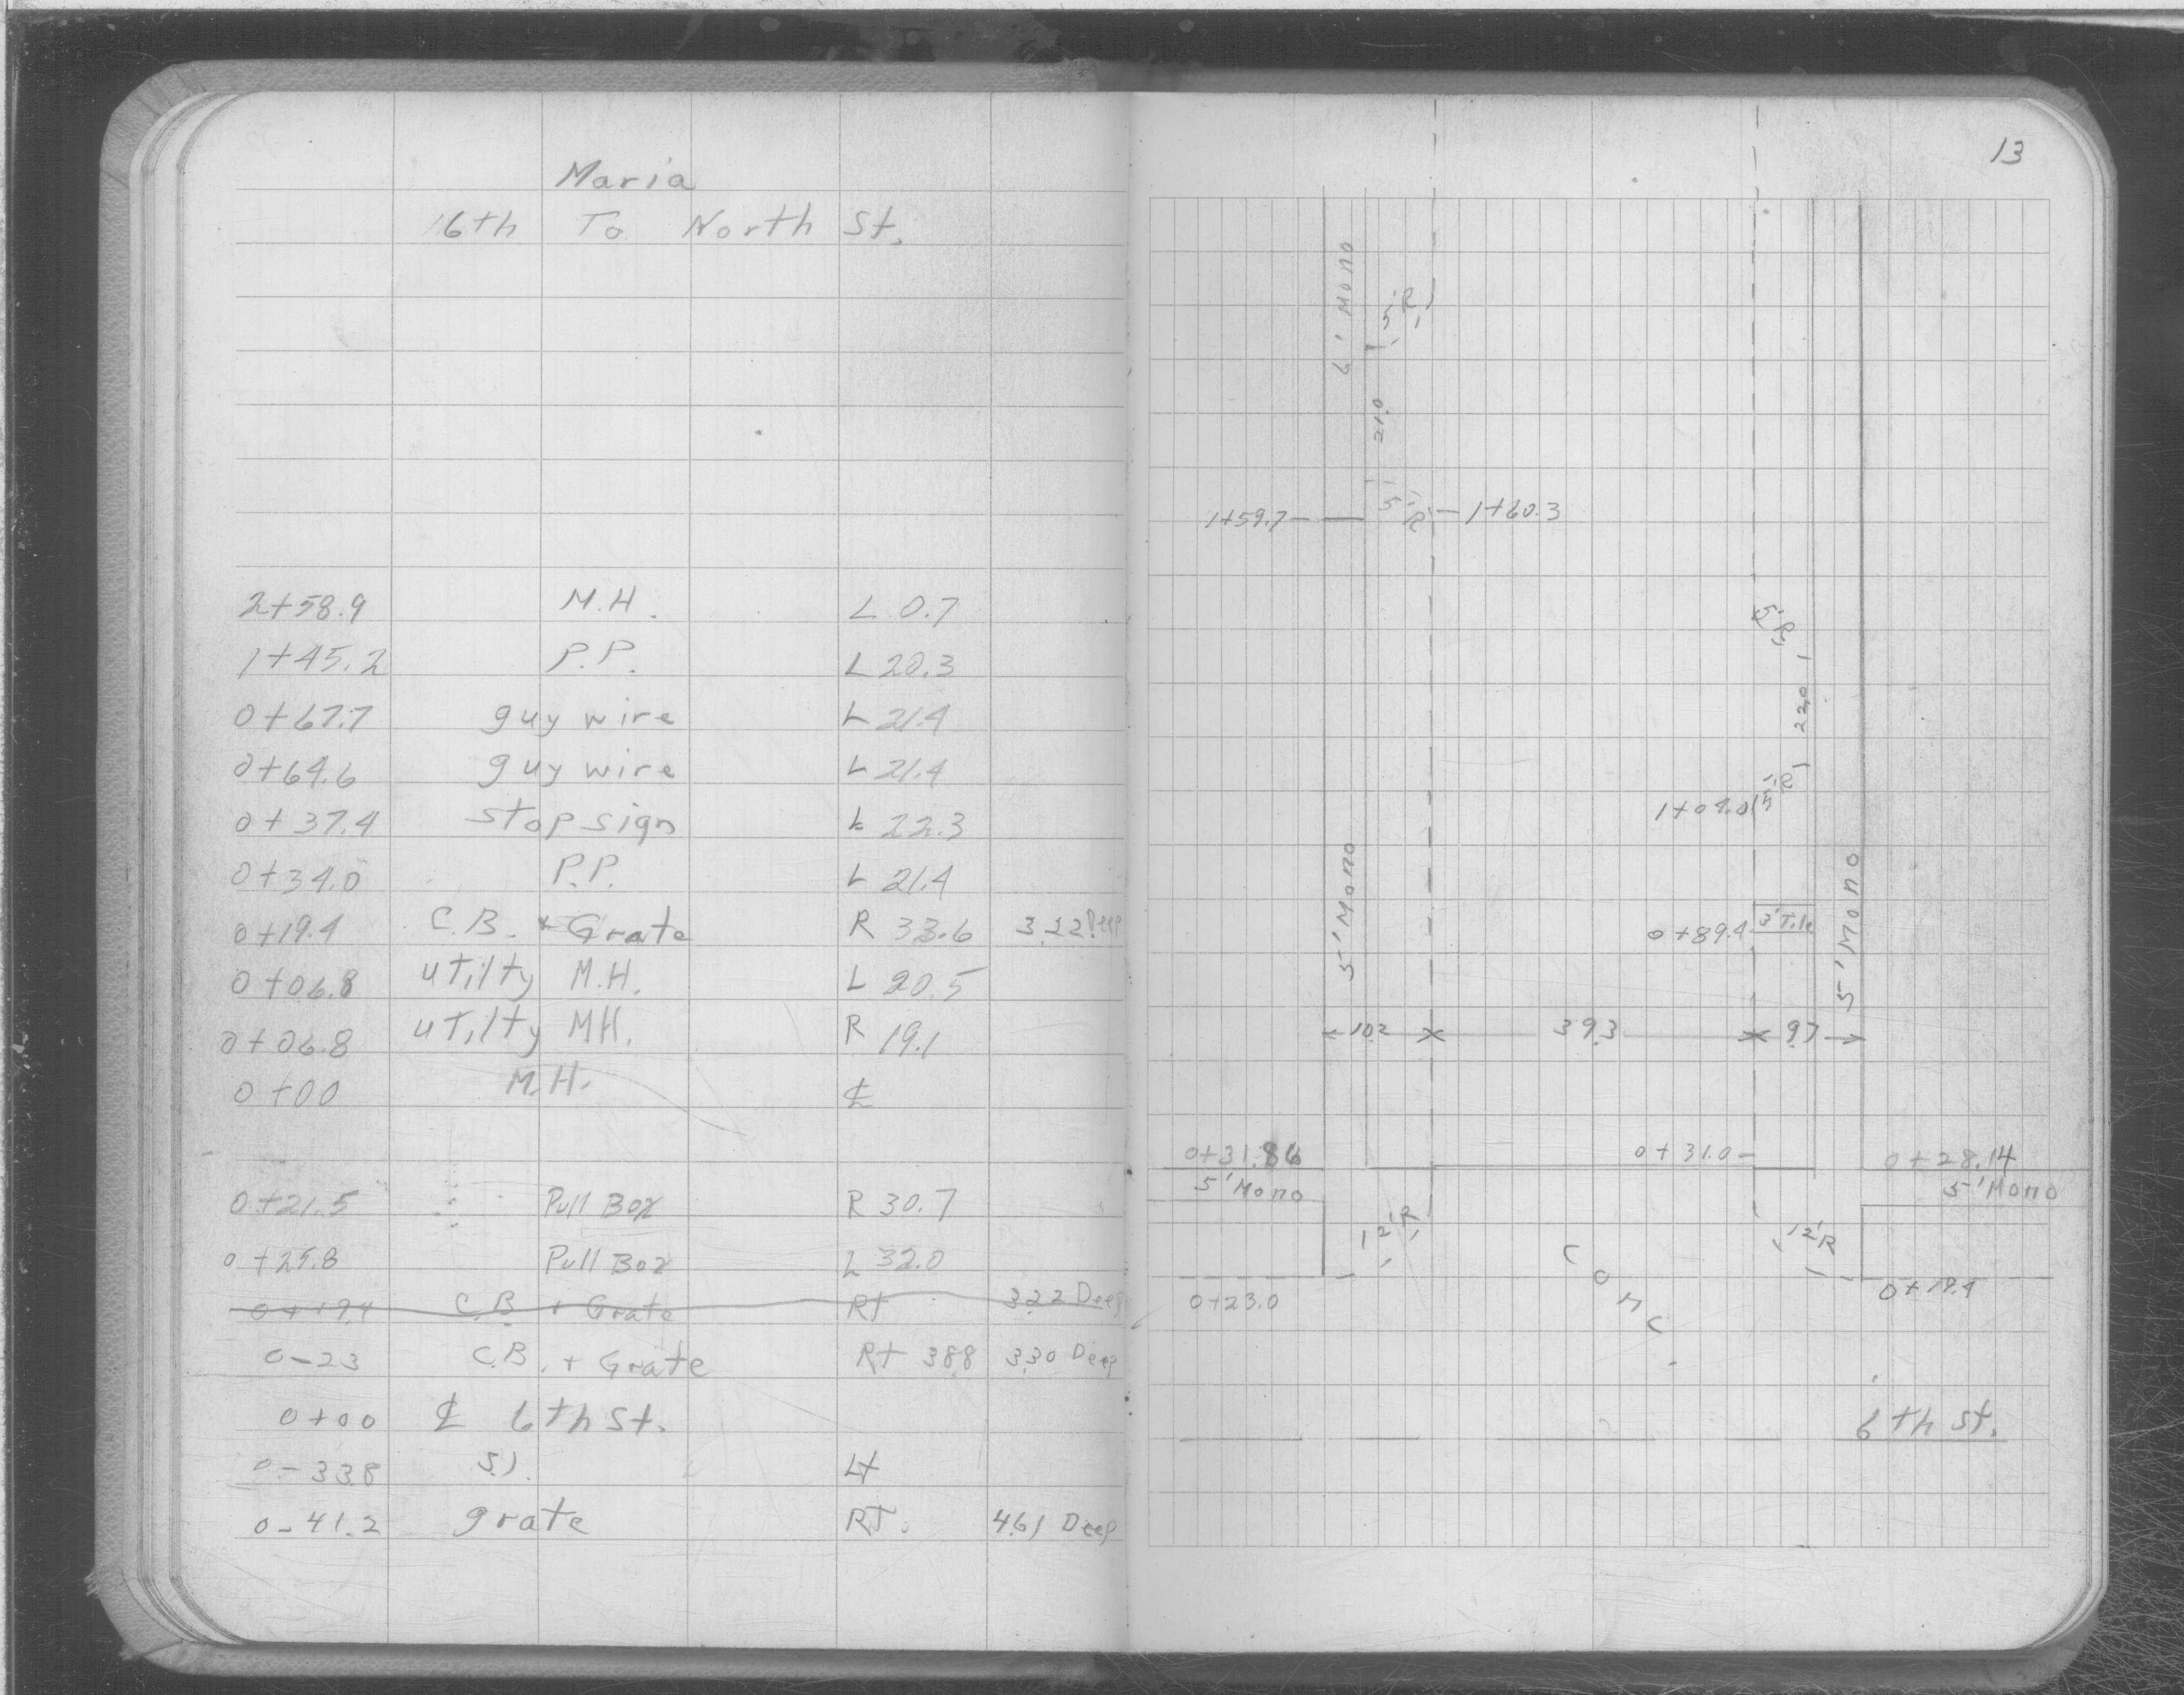 Maria
6th To North St.
2+58.9 M.H. L 0.7
1+45.2 P.P. L 20.3
0+67.7 guy wire L 21.4
0+64.6 guy wire L 21.4
0+37.4 stop sign L 22.3
0+34.0 P.P. L 21.4
0+19.4 C.B. + Grate R 33.6 3.22 Deep
0+06.8 utilty M.H. L 20.5
0+06.8 utilty MH. R 19.1
0+00 M.H. ℄
0+21.5 Pull Box R 30.7
0+25.8 Pull Box L 32.0
0+19.4 C.B. + Grate Rt 3.22 Deep
0-23 C.B. + Grate Rt 38.8 3.30 Deep
0+00 ℄ 6th St.
0-33.8 S.I. Lt
0-41.2 grate RT. 4.61 Deep
13
6' Mono
5'R
21.0
1+59.7
5'R
1+60.3
5'R
22.0
5'R
1+04.0
5' Mono
0+89.4
3' Tile
5' Mono
10.2
39.3
9.7
0+31.86
5' Mono
0+31.0
0+28.14
5' Mono
12'R
12'R
0+23.0
CONC
0+19.4
6th St.